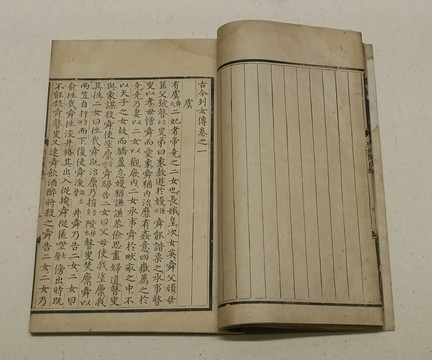 古今列女傳卷之一
虞
有虞二妃者帝堯之二女也長娥皇次女英舜父頑母
嚚父號瞽叟弟曰象敖遊於嫚舜能諧柔之承事瞽
叟以孝母憎舜而愛象舜猶内治靡有姦意四嶽薦之於
堯堯乃妻以二女以觀厥内二女承事舜於畎畝之中不
以天子之女故而驕盈怠嫚猶謙謙恭儉思盡婦道瞽叟
與象謀殺舜使塗廩舜歸告二女曰父母使我塗廩我
其往二女曰往哉舜既治廩乃捐階瞽叟焚廩舜以
兩笠自扞而下復使舜浚井舜乃告二女二女曰
俞往哉舜往浚井格其出入從掩舜從匿空旁出時既
不能殺舜瞽叟又速舜飲酒醉將殺之舜告二女二女乃